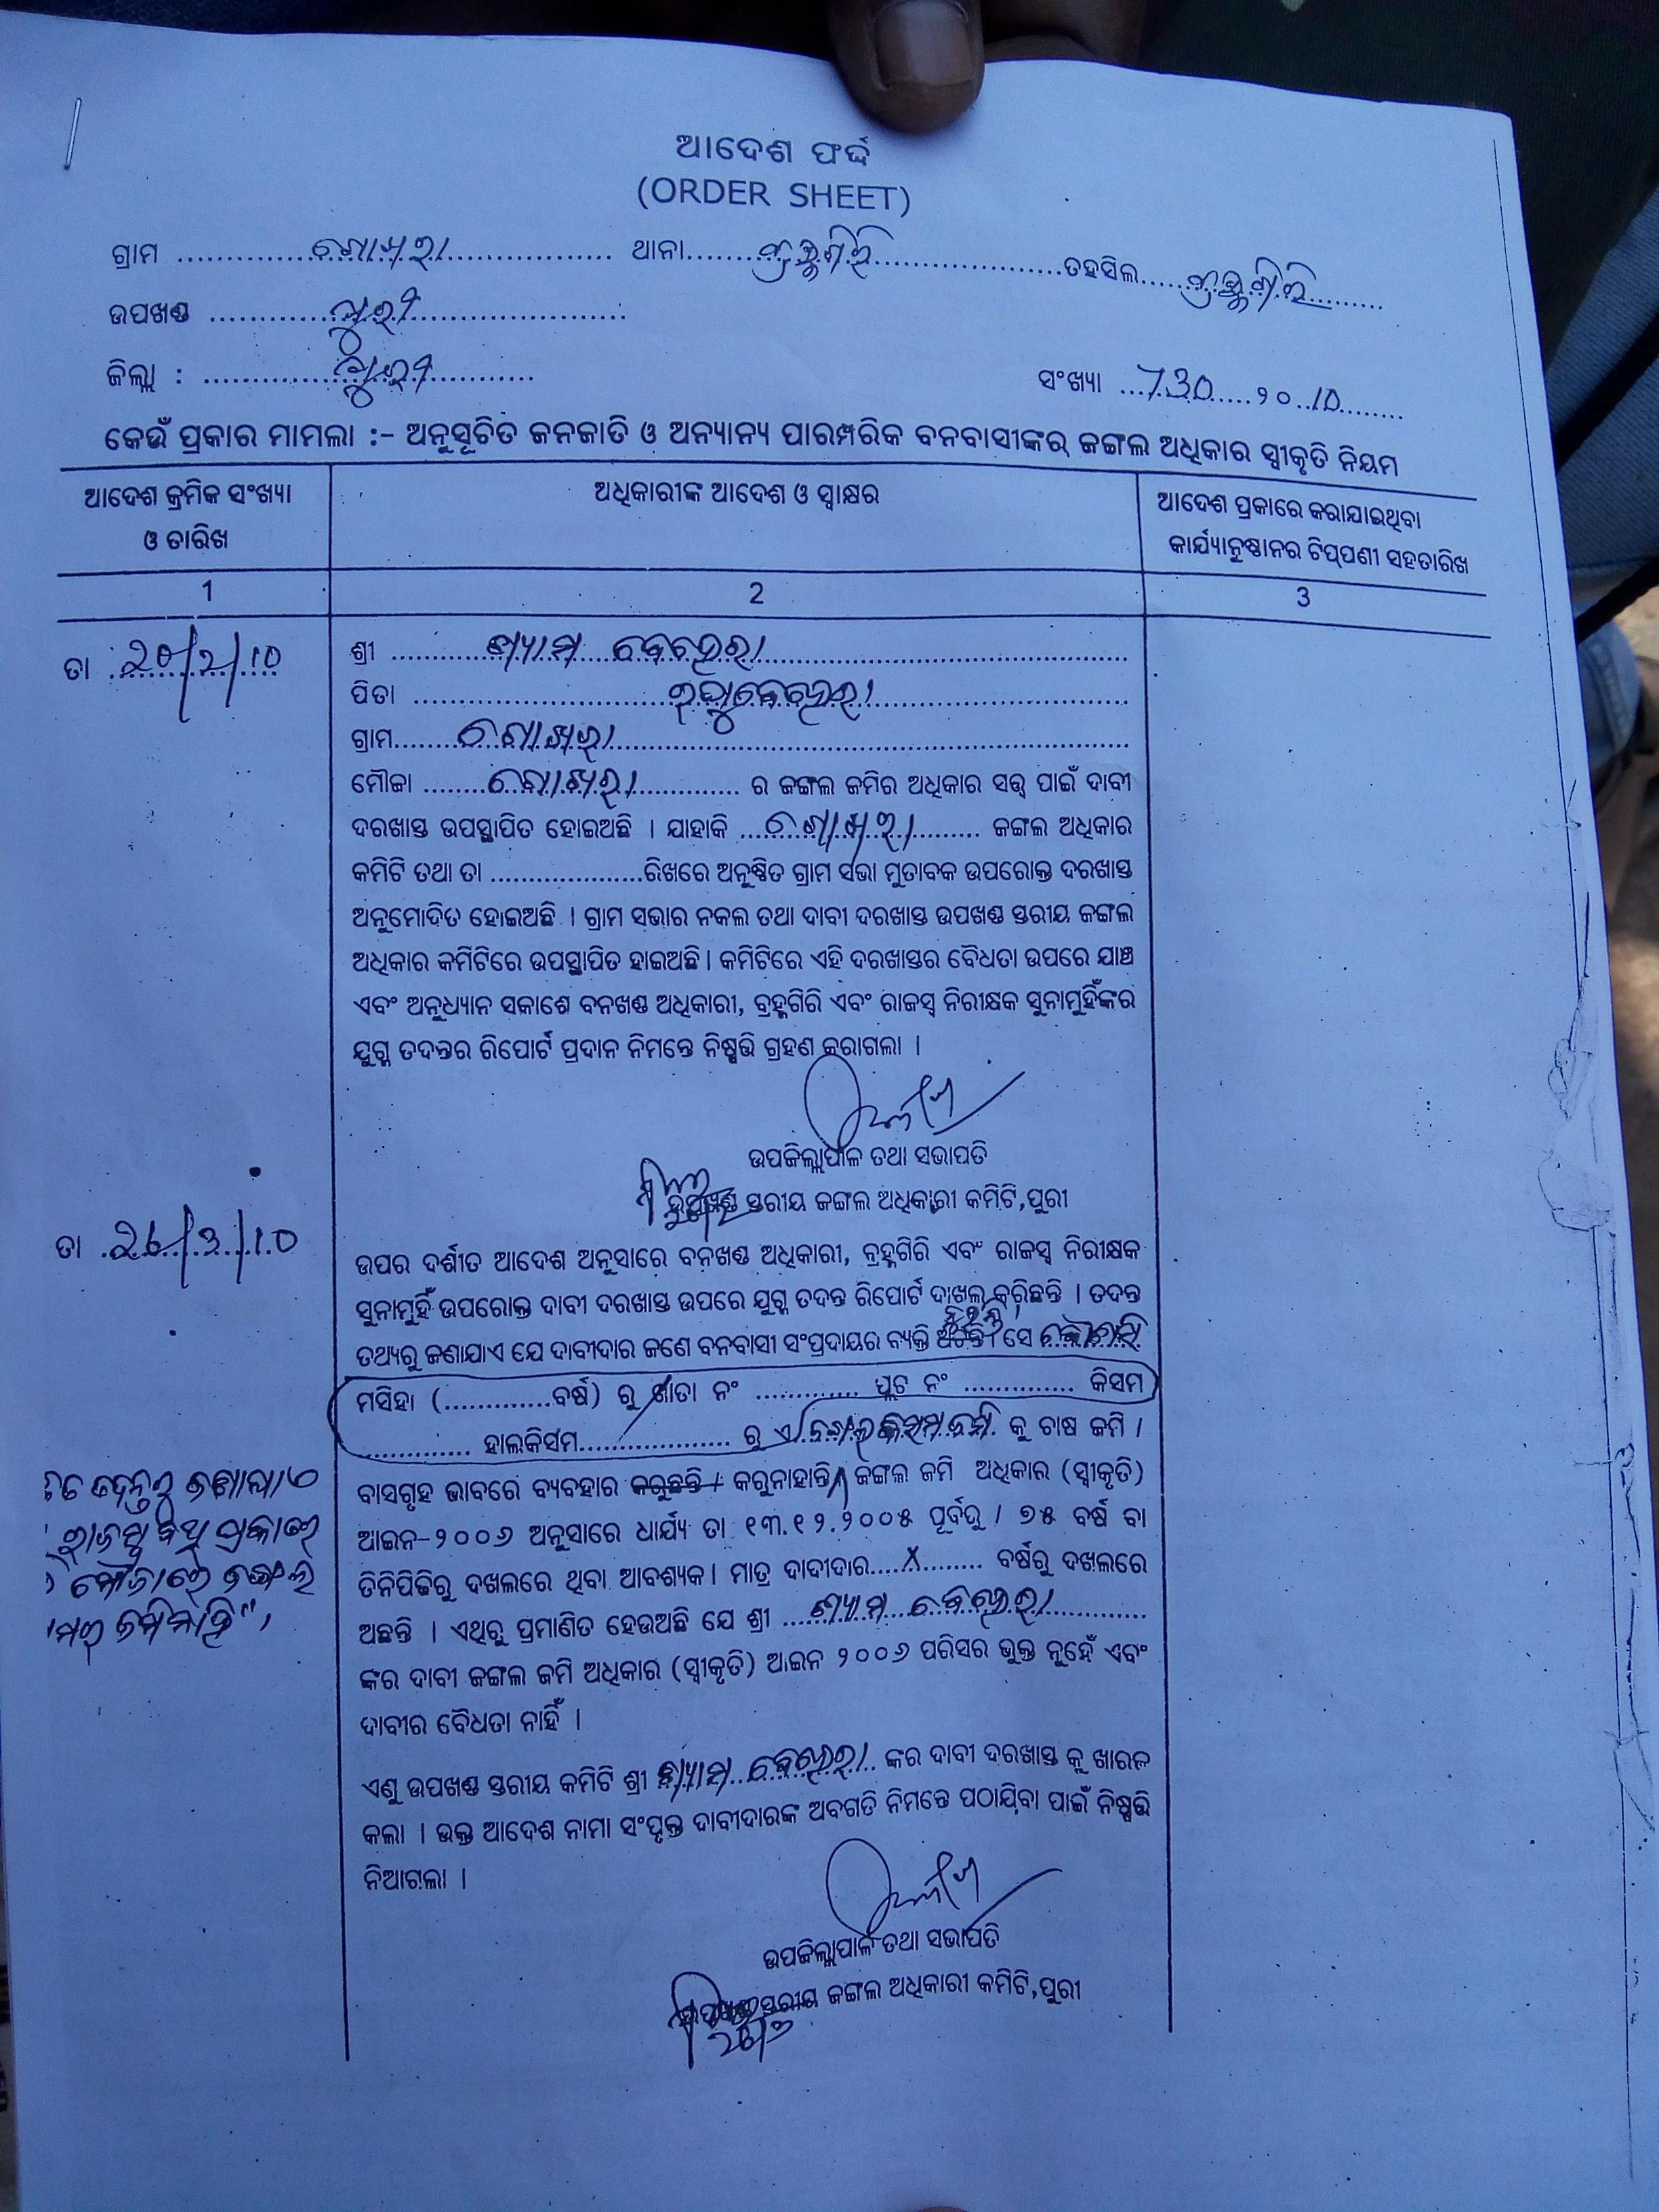 ଆଦେଶ ଫର୍ଦ୍ଦ
(ORDER SHEET)
ଗ୍ରାମ ........ ଗୋଖରା ........ ଥାନା ........ ବ୍ରହ୍ମଗିରି ........ ତହସିଲ ........ ବ୍ରହ୍ମଗିରି ........
ଉପଖଣ୍ଡ ........ ପୁରୀ ........
ଜିଲ୍ଲା : ........ ପୁରୀ ........ ସଂଖ୍ୟା ...730.....୨୦..10........
କେଉଁ ପ୍ରକାର ମାମଲା :- ଅନୁସୂଚିତ ଜନଜାତି ଓ ଅନ୍ୟାନ୍ୟ ପାରମ୍ପରିକ ବନବାସୀଙ୍କର୍ ଜଙ୍ଗଲ ଅଧିକାର ସ୍ୱୀକୃତି ନିୟମ
ଆଦେଶ କ୍ରମିକ ସଂଖ୍ୟା
ଓ ତାରିଖ
ଅଧିକାରୀଙ୍କ ଆଦେଶ ଓ ସ୍ୱାକ୍ଷର
ଆଦେଶ ପ୍ରକାରେ କରାଯାଇଥିବା
କାର୍ଯ୍ୟାନୁଷ୍ଠାନର ଟିପ୍ପଣୀ ସହତାରିଖ
1 2 3
ତା 20/2/10
ଶ୍ରୀ ........ ଶ୍ୟାମ ବେହେରା ........
ପିତା ........ ବେହେରା ........
ଗ୍ରାମ ........ ଗୋଖରା ........
ମୌଜା ........ ଗୋଖରା ........ ର ଜଙ୍ଗଲ ଜମିର ଅଧିକାର ସତ୍ତ୍ୱ ପାଇଁ ଦାବୀ
ଦରଖାସ୍ତ ଉପସ୍ଥାପିତ ହୋଇଅଛି । ଯାହାକି ........ ଗୋଖରା ........ ଜଙ୍ଗଲ ଅଧିକାର
କମିଟି ତଥା ତା ....................ରିଖରେ ଅନୁଷ୍ଠିତ ଗ୍ରାମ ସଭା ମୁତାବକ ଉପରୋକ୍ତ ଦରଖାସ୍ତ
ଅନୁମୋଦିତ ହୋଇଅଛି । ଗ୍ରାମ ସଭାର ନକଲ ତଥା ଦାବୀ ଦରଖାସ୍ତ ଉପଖଣ୍ଡ ସ୍ତରୀୟ ଜଙ୍ଗଲ
ଅଧିକାର କମିଟିରେ ଉପସ୍ଥାପିତ ହାଇଅଛି । କମିଟିରେ ଏହି ଦରଖାସ୍ତର ବୈଧତା ଉପରେ ଯାଞ୍ଚ
ଏବଂ ଅନୁଧ୍ୟାନ ସକାଶେ ବନଖଣ୍ଡ ଅଧିକାରୀ, ବ୍ରହ୍ମଗିରି ଏବଂ ରାଜସ୍ୱ ନିରୀକ୍ଷକ ସୁନାମୁହିଁଙ୍କର
ଯୁଗ୍ମ ତଦନ୍ତର ରିପୋର୍ଟ ପ୍ରଦାନ ନିମନ୍ତେ ନିଷ୍ପତ୍ତି ଗ୍ରହଣ କରାଗଲା ।
ଉପଜିଲ୍ଲାପାଳ ତଥା ସଭାପତି
ଉପଖଣ୍ଡ ସ୍ତରୀୟ ଜଙ୍ଗଲ ଅଧିକାରୀ କମିଟି,ପୁରୀ
ତା 26/3/10
ଉପର ଦର୍ଶୀତ ଆଦେଶ ଅନୁସାରେ ବନଖଣ୍ଡ ଅଧିକାରୀ, ବ୍ରହ୍ମଗିରି ଏବଂ ରାଜସ୍ୱ ନିରୀକ୍ଷକ
ସୁନାମୁହିଁ ଉପରୋକ୍ତ ଦାବୀ ଦରଖାସ୍ତ ଉପରେ ଯୁଗ୍ମ ତଦନ୍ତ ରିପୋର୍ଟ ଦାଖଲ କରିଛନ୍ତି । ତଦନ୍ତ
ନୁହଁନ୍ତି
ତଥ୍ୟରୁ ଜଣାଯାଏ ଯେ ଦାବୀଦାର ଜଣେ ବନବାସୀ ସଂପ୍ରଦାୟର ବ୍ୟକ୍ତି ଅଟନ୍ତି ସେ
ମସିହା (.............ବର୍ଷ) ରୁ ଖାତା ନଂ ............. ପ୍ଲଟ ନଂ .............. କିସମ
............. ହାଲକିସମ.................... ରୁ ଏ କୁ ଚାଷ ଜମି ।
ବାସଗୃହ ଭାବରେ ବ୍ୟବହାର କରୁଛନ୍ତି / କରୁନାହାନ୍ତି । ଜଙ୍ଗଲ ଜମି ଅଧିକାର (ସ୍ୱୀକୃତି)
ଆଇନ-୨୦୦୬ ଅନୁସାରେ ଧାର୍ଯ୍ୟ ତା ୧୩.୧୨.୨୦୦୫ ପୂର୍ବରୁ । ୭୫ ବର୍ଷ ବା
ତିନିପିଢିରୁ ଦଖଲରେ ଥିବା ଆବଶ୍ୟକ । ମାତ୍ର ଦାବୀଦାର.....X........ ବର୍ଷରୁ ଦଖଲରେ
ଅଛନ୍ତି । ଏଥିରୁ ପ୍ରମାଣିତ ହେଉଅଛି ଯେ ଶ୍ରୀ ........ ଶ୍ୟାମ ବେହେରା ........
ଙ୍କର ଦାବୀ ଜଙ୍ଗଲ ଜମି ଅଧିକାର (ସ୍ୱୀକୃତି) ଆଇନ ୨୦୦୬ ପରିସର ଭୁକ୍ତ ନୁହେଁ ଏବଂ
ଦାବୀର ବୈଧତା ନାହିଁ ।
ଏଣୁ ଉପଖଣ୍ଡ ସ୍ତରୀୟ କମିଟି ଶ୍ରୀ ଶ୍ୟାମ ବେହେରା ଙ୍କର ଦାବୀ ଦରଖାସ୍ତ କୁ ଖାରଜ
କଲା । ଉକ୍ତ ଆଦେଶ ନାମା ସଂପୃକ୍ତ ଦାବୀଦାରଙ୍କ ଅବଗତି ନିମନ୍ତେ ପଠାଯିବା ପାଇଁ ନିଷ୍ପତ୍ତି
ନିଆଗଲା ।
ଉପଜିଲ୍ଲାପାଳ ତଥା ସଭାପତି
ଉପଖଣ୍ଡ ସ୍ତରୀୟ ଜଙ୍ଗଲ ଅଧିକାରୀ କମିଟି,ପୁରୀ
26/3